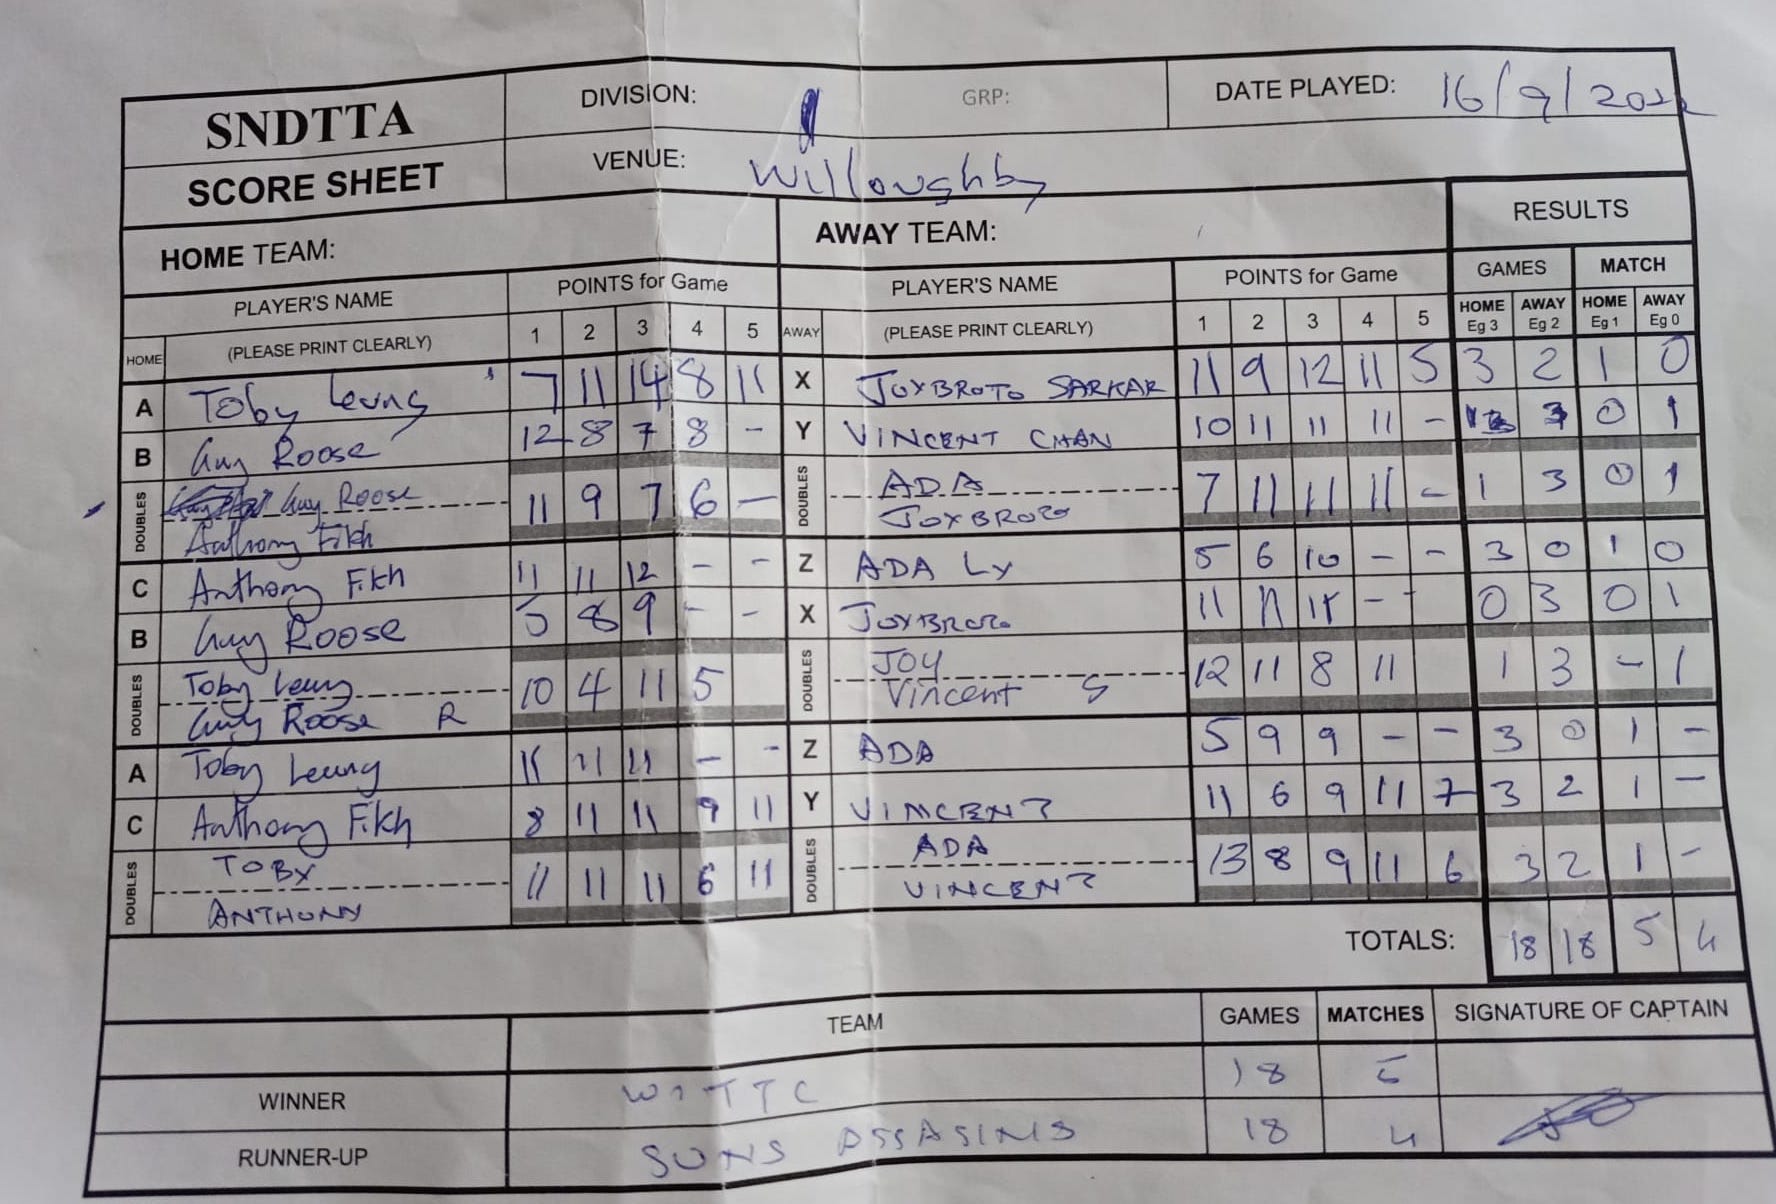 SNDTTA DIVISION: 1 GRP: DATE PLAYED: 16/9/2022
SCORE SHEET VENUE: Willoughby
RESULTS
HOME TEAM: AWAY TEAM:
PLAYER'S NAME POINTS for Game PLAYER'S NAME POINTS for Game GAMES MATCH
HOME (PLEASE PRINT CLEARLY) 1 2 3 4 5 AWAY (PLEASE PRINT CLEARLY) 1 2 3 4 5 HOME Eg 3 AWAY Eg 2 HOME Eg 1 AWAY Eg 0
A Toby Leung 7 11 14 8 11 X JOYBROTO SARKAR 11 9 12 11 5 3 2 1 0
B Guy Roose 12 8 7 8 - Y VINCENT CHAN 10 11 11 11 - 3 0 1
DOUBLES Guy Roose 11 9 7 6 - DOUBLES ADA 7 11 11 11 - 1 3 0 1
Anthony Fikh JOYBROTO
C Anthony Fikh 11 11 12 - - Z ADA LY 5 6 10 - - 3 0 1 0
B Guy Roose 5 8 9 - - X JOYBROTO 11 11 11 - - 0 3 0 1
DOUBLES Toby Leung 10 4 11 5 DOUBLES JOY 12 11 8 11 1 3 - 1
Guy Roose R Vincent S
A Toby Leung 11 11 11 - - Z ADA 5 9 9 - - 3 0 1 -
C Anthony Fikh 8 11 11 9 11 Y VINCENT 11 6 9 11 7 3 2 1 -
DOUBLES TOBY 11 11 11 6 11 DOUBLES ADA 13 8 9 11 6 3 2 1 -
ANTHONY VINCENT
TOTALS: 18 18 5 4
TEAM GAMES MATCHES SIGNATURE OF CAPTAIN
WINNER WTTTC 18 5
RUNNER-UP SUNS ASSASINS 18 4